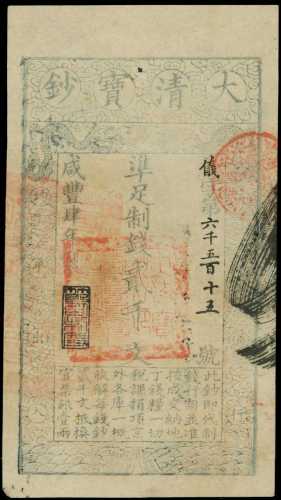 大清寶鈔
儀字第六千五百十五號
準足制錢貳千文
咸豐肆年
此鈔即代制
錢行用並准
按成交納地
丁錢糧一切
稅課捐項京
外各庫一概
收解每錢鈔
貳千文抵換
官票銀壹兩